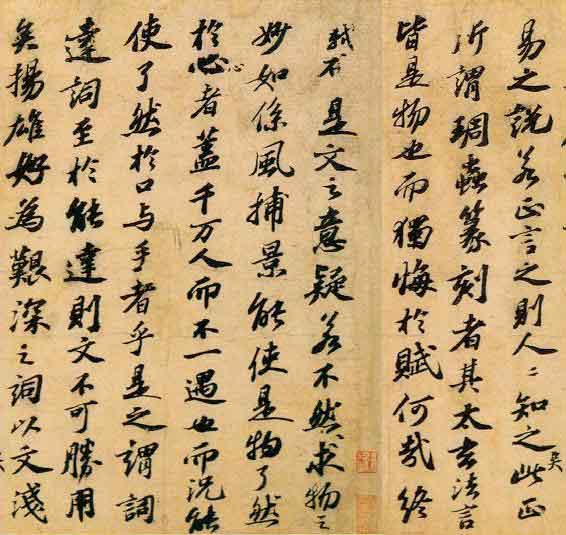 易之說若正言之則人〻知之此正
所謂琱蟲篆刻者其太玄法言
皆是物也而獨悔於賦何哉終
是文之意疑若不然求物之
妙如係風捕景能使是物了然
於心者蓋千万人而不一遇也而況能
心
使了然於口与手者乎是之謂詞
達詞至於能達則文不可勝用
矣揚雄好為艱深之詞以文淺